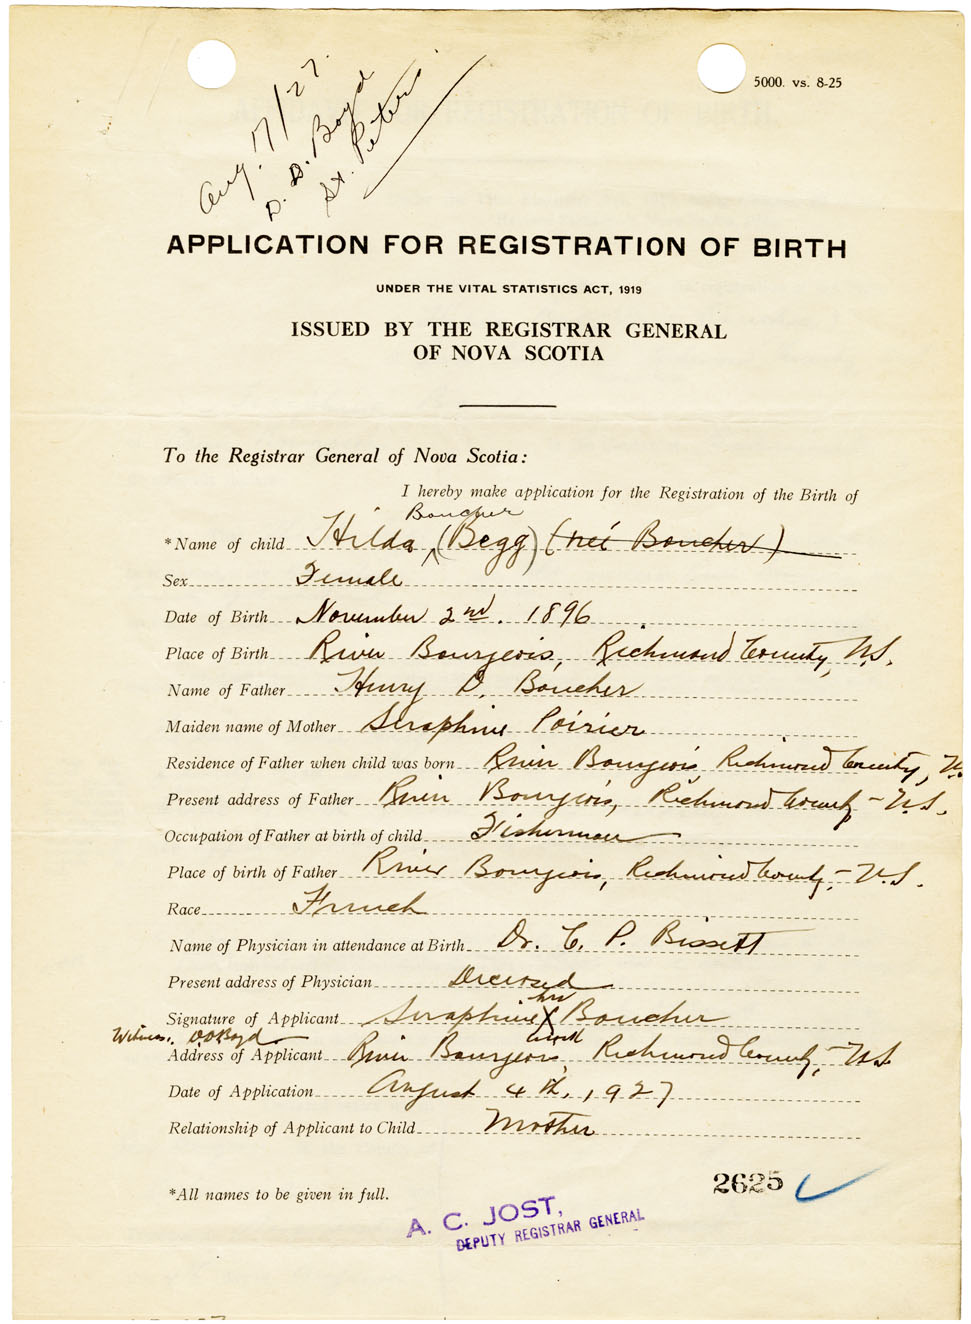 Aug. 17/27.
D. D. Boyd
St. Peters.
5000. vs. 8-25
APPLICATION FOR REGISTRATION OF BIRTH
UNDER THE VITAL STATISTICS ACT, 1919
ISSUED BY THE REGISTRAR GENERAL
OF NOVA SCOTIA
To the Registrar General of Nova Scotia:
I hereby make application for the Registration of the Birth of
Boucher
*Name of child Hilda (Begg) (neé Boucher)
Sex Female
Date of Birth November 2nd. 1896
Place of Birth River Bourgeois, Richmond County, N.S.
Name of Father Henry D. Boucher
Maiden name of Mother Seraphine Poirier
Residence of Father when child was born River Bourgeois, Richmond County, N.
Present address of Father River Bourgeois, Richmond County - N.S.
Occupation of Father at birth of child Fisherman
Place of birth of Father River Bourgeois, Richmond County, - N.S.
Race French
Name of Physician in attendance at Birth Dr. C. P. Bissett
Present address of Physician Deceased
her
Signature of Applicant Seraphine X Boucher
mark
Witness. D.D Boyd
Address of Applicant River Bourgeois Richmond County, - N.S
Date of Application August 4th, 1927
Relationship of Applicant to Child Mother
*All names to be given in full.
2625
A. C. JOST,
DEPUTY REGISTRAR GENERAL